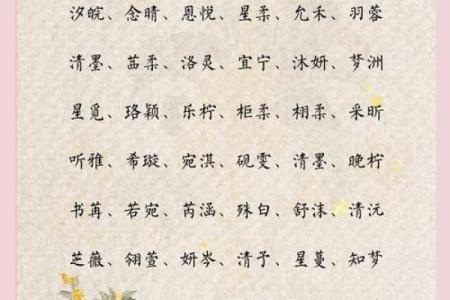 汐皖、念晴、恩悦、星柔、允禾、羽蓉
清墨、茁柔、洛灵、宜宁、沐妍、梦洲
星觅、珞颖、乐柠、柜柔、栩柔、采昕
听雅、希璇、宛淇、砚雯、清墨、晚柠
书苒、若宛、芮涵、殊白、舒沫、清沅
芝薇、翎萱、妍岑、清予、星蔓、知梦